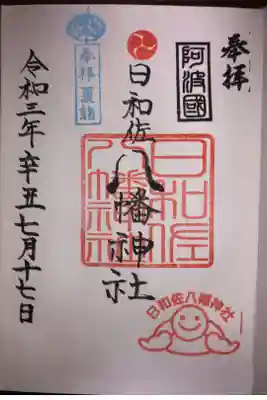 奉拝
阿波國
日和佐八幡神社
日和佐八幡神社
日和佐八幡神社
令和三年辛丑七月十七日